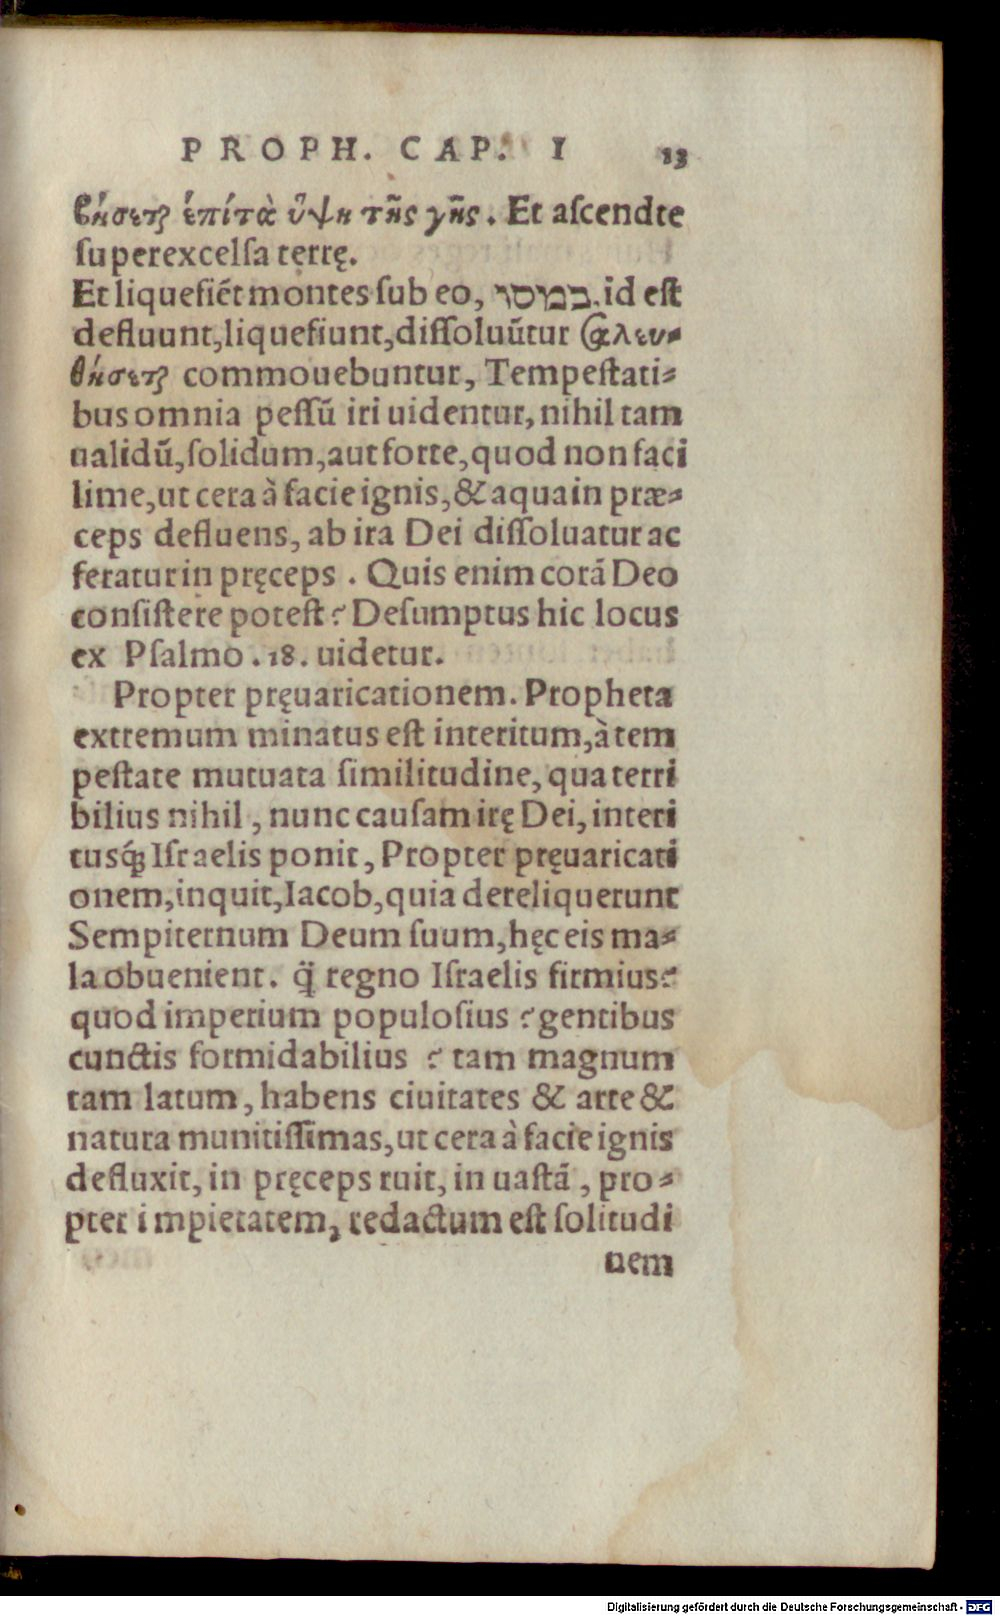 PROPH. CAP. I 13
βήσεται ἐπίτὰ ὕψη τῆς γῆς. Et aſcendte
ſuperexcelſa terrę.
Et liquefiēt montes ſub eo, במסו. id eſt
defluunt, liquefiunt, diſſoluūtur σαλευ⸗
θήσεται commouebuntur, Tempeſtati⸗
bus omnia peſſū iri uidentur, nihil tam
ualidū, ſolidum, aut forte, quod non faci
lime, ut cera à facie ignis, & aqua in præ⸗
ceps defluens, ab ira Dei diſſoluatur ac
feratur in pręceps. Quis enim corā Deo
conſiſtere poteſt? Deſumptus hic locus
ex Pſalmo. 18. uidetur.
Propter pręuaricationem. Propheta
extremum minatus eſt interitum, à tem
peſtate mutuata ſimilitudine, qua terri
bilius nihil, nunc cauſam irę Dei, interi
tusq́ꝫ Iſraelis ponit, Propter pręuaricati
onem, inquit, Iacob, quia dereliquerunt
Sempiternum Deum ſuum, hęc eis ma⸗
la obuenient. q̈ regno Iſraelis firmius?
quod imperium populoſius? gentibus
cunctis formidabilius? tam magnum
tam latum, habens ciuitates & arte &
natura munitiſſimas, ut cera à facie ignis
defluxit, in pręceps ruit, in uaſtā, pro⸗
pter impietatem, redactum eſt ſolitudi
nem
Digitalisierung gefördert durch die Deutsche Forschungsgemeinschaft - DFG